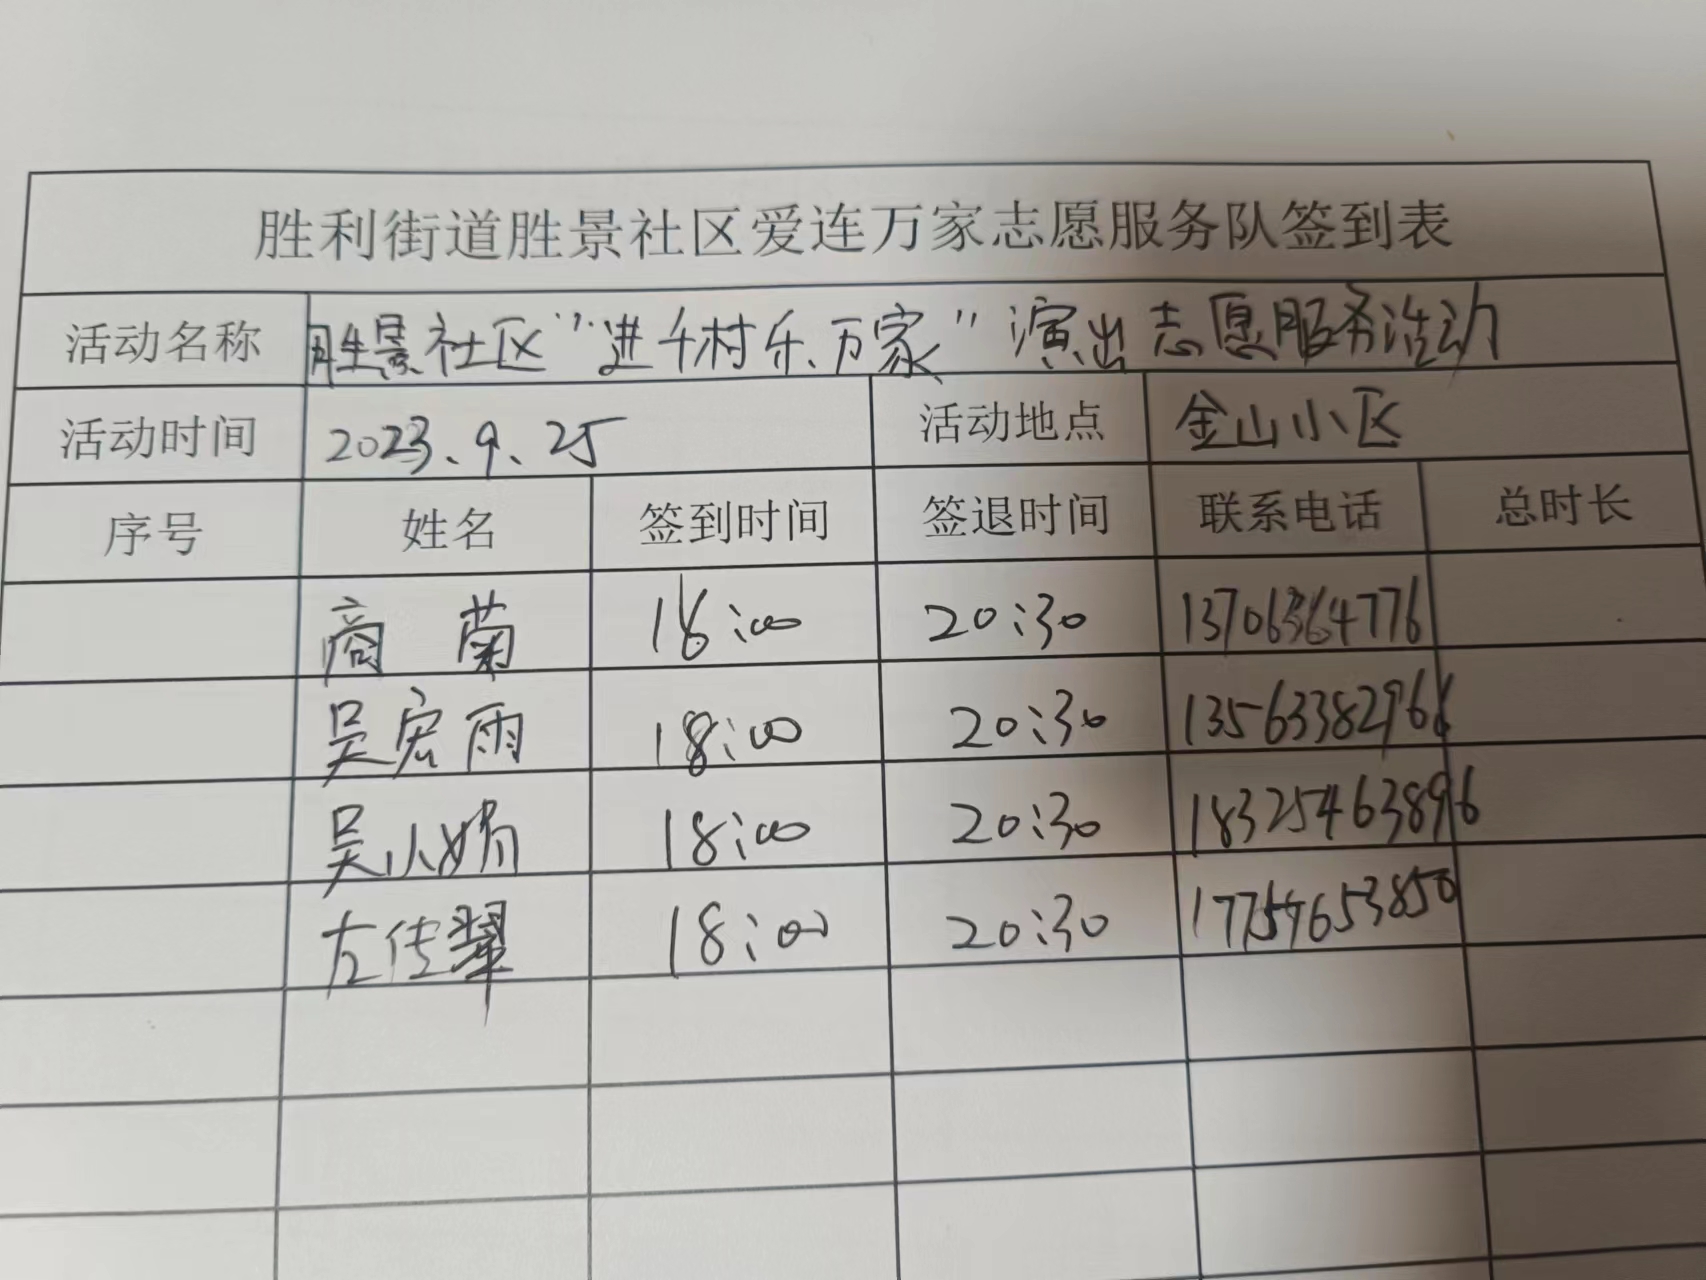 胜利街道胜景社区爱连万家志愿服务队签到表
活动名称 胜景社区“进千村乐万家”演出志愿服务活动
活动时间 2023.9.25 活动地点 金山小区
序号 姓名 签到时间 签退时间 联系电话 总时长
商菊 18:00 20:30 13706364776
吴宏雨 18:00 20:30 13563382966
吴小娟 18:00 20:30 18325463896
左传翠 18:00 20:30 17754653850